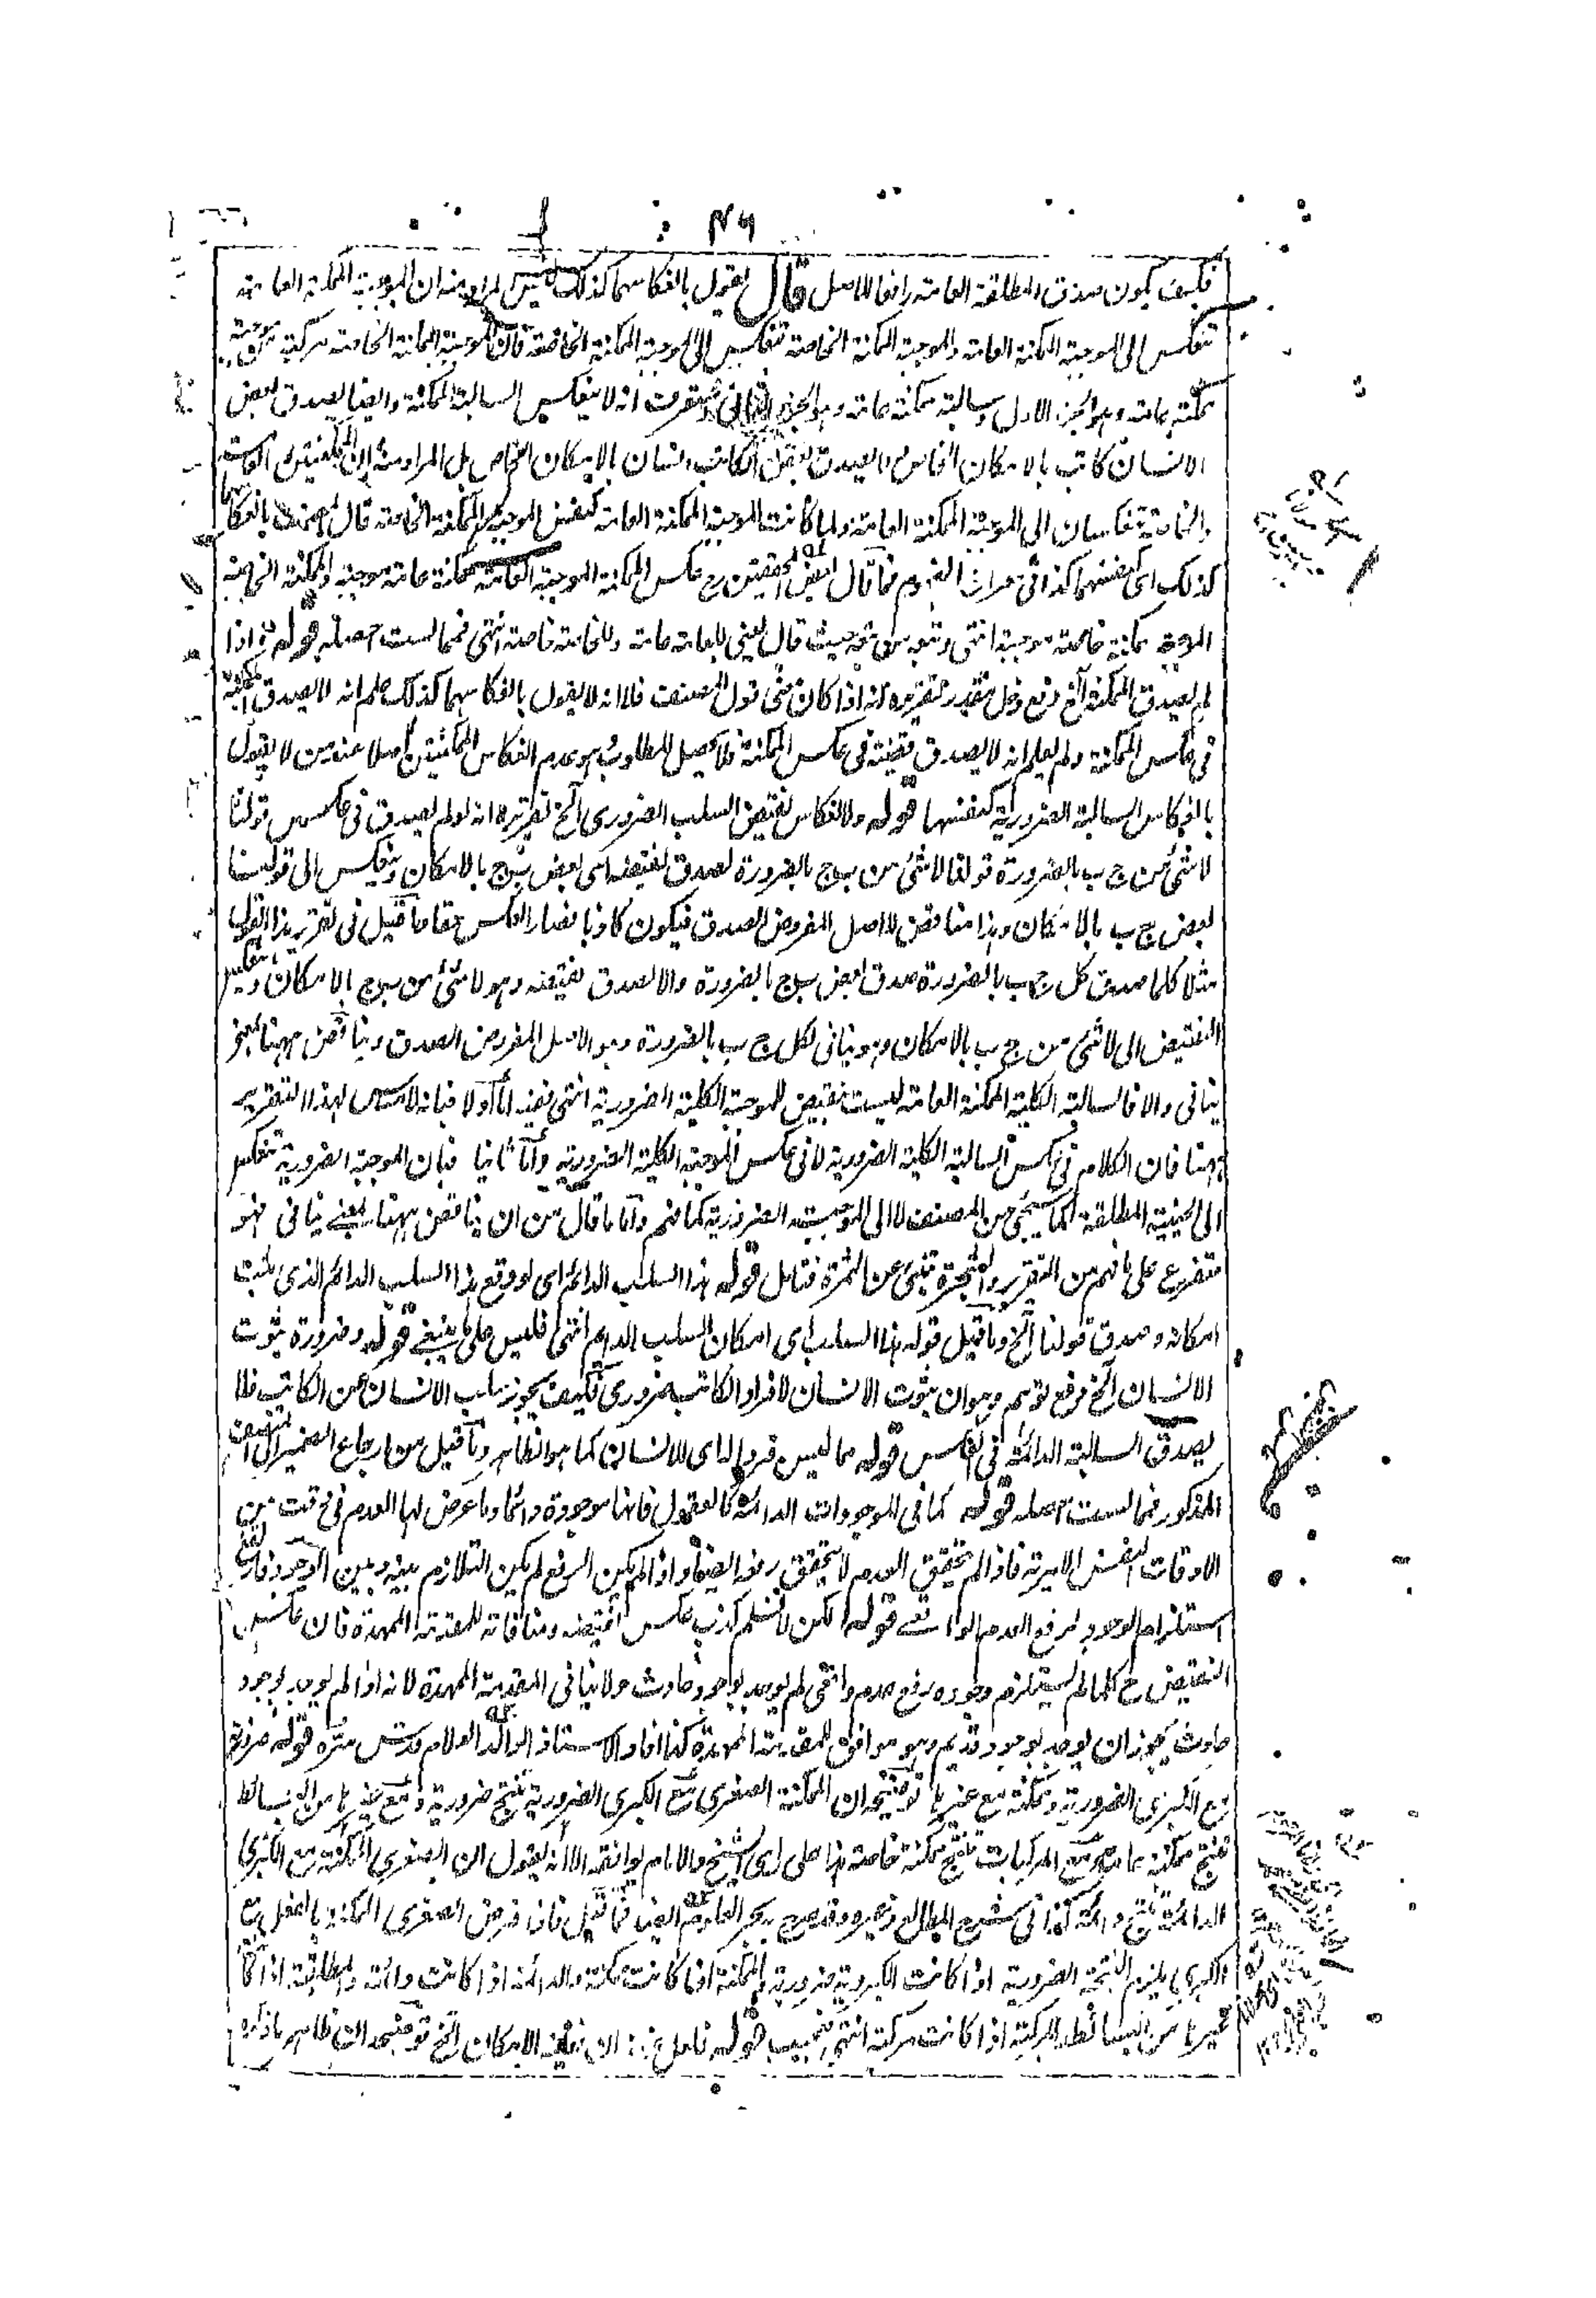 ٤٦
فكيف يكون صدق المطلقة العامة رافعا للاصل قال يقول بانعكاسهما كذلك ليس المراد منه ان الموجبة الممكنة العامة
تنعكس الى الموجبة الممكنة العامة والموجبة الممكنة الخاصة تنعكس الى الموجبة الممكنة الخاصة فان الموجبة الممكنة الخاصة مركبة من موجبة
ممكنة عامة وهو الجزء الاول وسالبة ممكنة عامة وهو الجزء الثانى وستعرف انه لا ينعكس السالبة الممكنة وايضا يصدق بعض
الانسان كاتب بالامكان الخاص ولا يصدق بعض الكاتب انسان بالامكان الخاص بل المراد منه ان الممكنتين العامة
والخاصة تنعكسان الى الموجبة الممكنة العامة ولما كانت الموجبة الممكنة العامة كنفس الموجبة الممكنة الخاصة قال المصنف بانعكاسهما
كذلك اى كنفسهما كذا فى معراج الفهوم فما قال بعض المحققين رح عكس الممكنة الموجبة العامة ممكنة عامة موجبة والممكنة الخاصة
الموجبة ممكنة خاصة موجبة انتهى وتبعه من تبعه حيث قال يعنى للعامة عامة وللخاصة خاصة انتهى فمما لست احصله قوله واذا
لم يصدق الممكنة الخ دفع دخل مقدر تقريره انه اذا كان معنى قول المصنف فلانه لا يقول بانعكاسهما كذلك علم انه لا يصدق الممكنة
فى عكس الممكنة ولم يعلم انه لا يصدق قضية فى عكس الممكنة فلا يحصل المطلوب وهو عدم انعكاس الممكنتين اصلا عند من لا يقول
بانعكاس السالبة الضرورية كنفسها قوله ولانعكاس نقيض السلب الضرورى الخ تقريره انه لو لم يصدق فى عكس قولنا
لا شئ من ج ب بالضرورة قولنا لا شئ من ب ج بالضرورة لصدق نقيضه اى بعض ب ج بالامكان وينعكس الى قولنا
بعض ج ب بالامكان وهذا مناقض للاصل المفروض الصدق فيكون كاذبا فصار العكس حقا وما قيل فى تقرير هذا القول
مثلا كلما صدق كل ج ب بالضرورة صدق بعض ب ج بالضرورة والا لصدق نقيضه وهو لا شئ من ب ج بالامكان وينعكس
النقيض الى لا شئ من ج ب بالامكان وهو ينافى لكل ج ب بالضرورة وهو الاصل المفروض الصدق ويناقض ههنا بمعنى
ينافى والا فالسالبة الكلية الممكنة العامة ليست نقيض للموجبة الكلية الضرورية انتهى ففيه اما اولا فبانه لا مساس لهذا التقرير
ههنا فان الكلام فى عكس السالبة الكلية الضرورية لا فى عكس الموجبة الكلية الضرورية واما ثانيا فبان الموجبة الضرورية تنعكس
الى الحينية المطلقة كما سيجئ من المصنف لا الى الموجبة الضرورية كما فهم واما ما قال من ان يناقض ههنا بمعنى ينافى فهو
متفرع على ما فهم من التقرير والشجرة تنبئ عن الثمرة فتامل قوله هذا السلب الدائم اى لو وقع هذا السلب الدائم الذى يثبت
امكانه وصدق قولنا الخ وما قيل قوله هذا السلب اى امكان السلب الدائم انتهى فليس على ما ينبغى قوله وضرورة ثبوت
الانسان الخ دفع توهم وهو ان ثبوت الانسان لافراد الكاتب ضرورى فكيف يجوز سلب الانسان عن الكاتب فلا
يصدق السالبة الدائمة فى العكس قوله مما ليس فردا له اى للانسان كما هو الظاهر وما قيل من ارجاع الضمير الى المتصف
المذكور فمما لست احصله قوله كما فى الموجودات الدائمة كالعقول فانها موجودة دائما وما عرض لها العدم فى وقت من
الاوقات النفس الامرية فاذا لم يتحقق العدم لا يتحقق رفعه ايضا واذا لم يكن الرفع لم يكن التلازم بينه وبين الوجود فارتفع
استلزام الوجود لرفع العدم الواقعى قوله لكن لا نسلم كذب عكس نقيضه ومنافاته للمقدمة الممهدة فان عكس
النقيض رح كلما لم يستلزم وجوده رفع عدم واقعى لم يوجد بوجود حادث ولا ينافى المقدمة الممهدة لانه اذا لم يوجد بوجود
حادث يجوز ان يوجد بوجود قديم وهو موافق للمقدمة الممهدة كذا افاد الاستاذ الوالد العلام قدس سره قوله ضرورية
مع الكبرى الضرورية وممكنة مع غيرها توضيحه ان الممكنة الصغرى مع الكبرى الضرورية تنتج ضرورية ومع غيرها من البسائط
تنتج ممكنة عامة ومع المركبات تنتج ممكنة خاصة هذا على راى الشيخ والامام يوافقه الا انه يقول ان الصغرى الممكنة مع الكبرى
الدائمة تنتج دائمة كذا فى شرح المطالع وغيره وقد صرح به بحر العلوم ايضا فما قيل فاذا فرض الصغرى الممكنة بالفعل مع
الكبرى يلزم النتيجة الضرورية اذا كانت الكبرى ضرورية والممكنة اذا كانت ممكنة والدائمة اذا كانت دائمة والمطلقة اذا كانت
غيرها من البسائط والمركبة اذا كانت مركبة انتهى فعجيب قوله تامل الخ توضيحه ان ظاهر ما ذكره